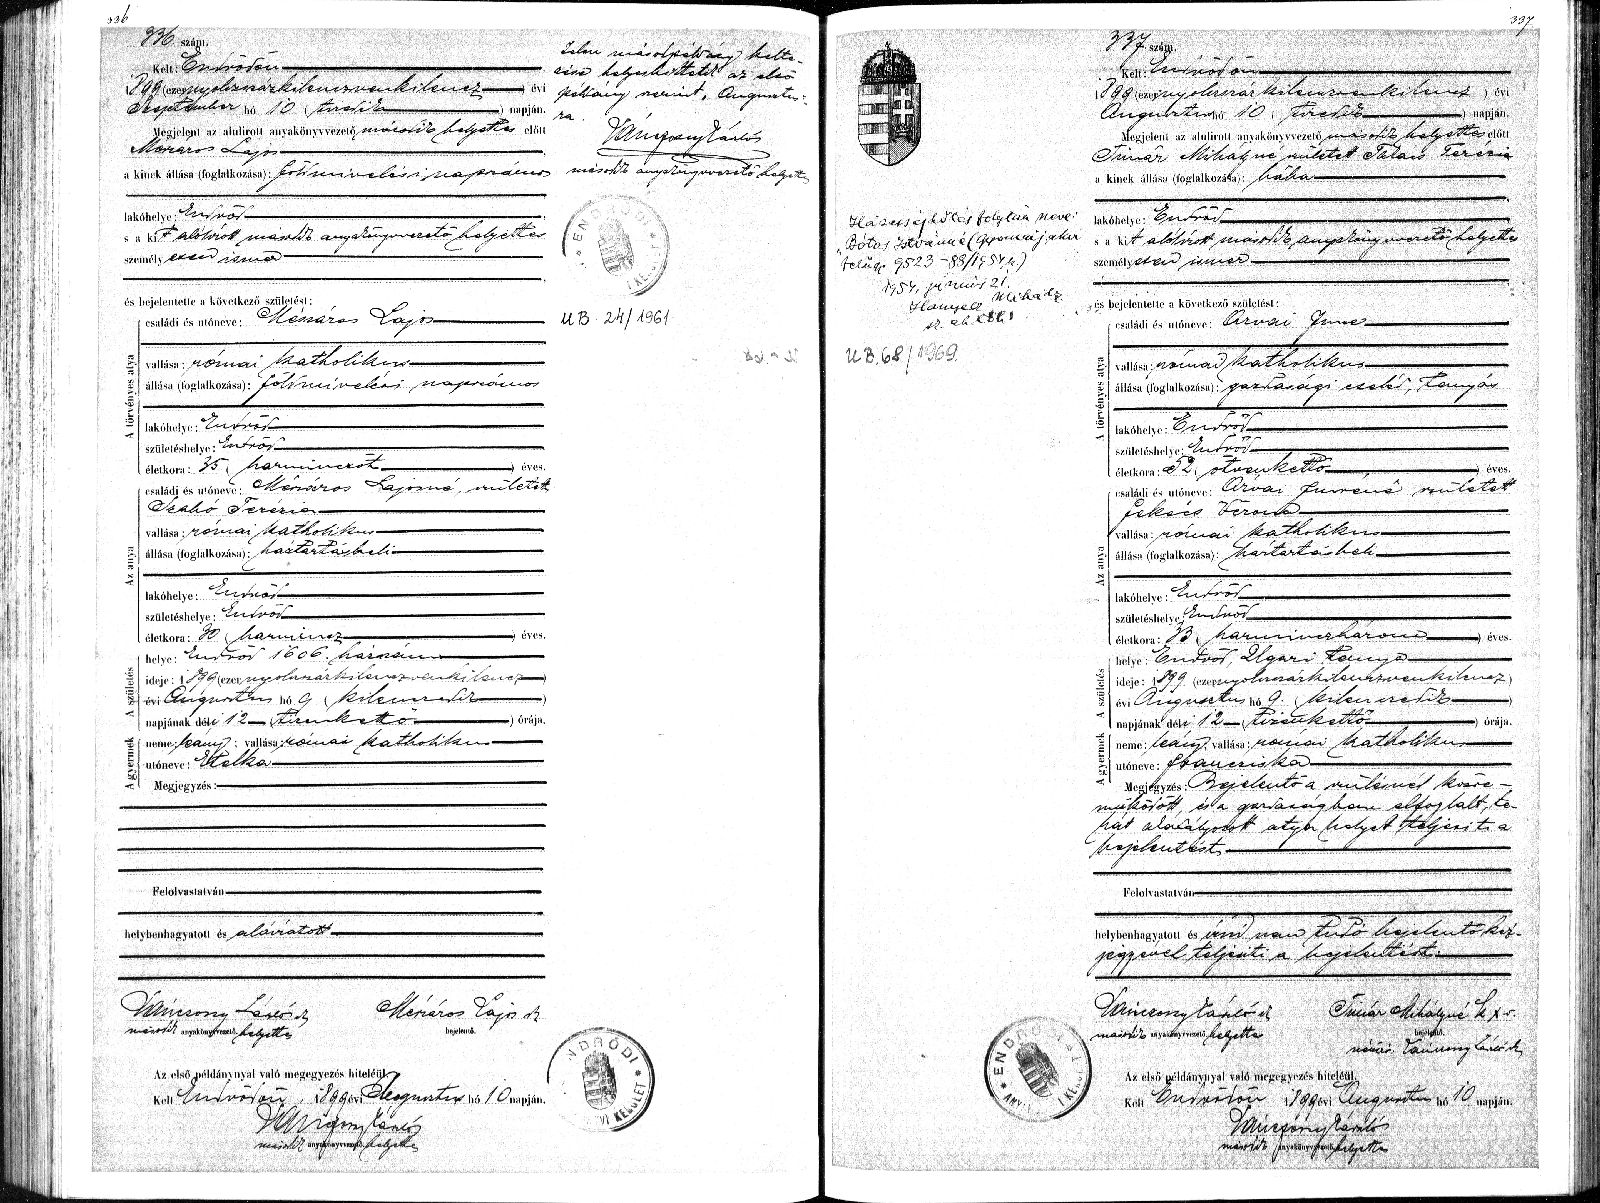 336
336 szám.
Kelt: Endrődön
1899 (ezernyolczszázkilenczvenkilencz) évi
Szeptember hó 10 (tizedik) napján.
Megjelent az alulirott anyakönyvvezető második helyettes előtt
Mészáros Lajos
a kinek állása (foglalkozása): földmivelési napszámos
lakóhelye: Endrőd
s a kit alólirott második anyakönyvvezető helyettes
személyesen ismer
és bejelentette a következő születést:
A törvényes atya
családi és utóneve: Mészáros Lajos
vallása: római katholikus
állása (foglalkozása): földmivelési napszámos
lakóhelye: Endrőd
születéshelye: Endrőd
életkora: 35 (harminczöt) éves.
Az anya
családi és utóneve: Mészáros Lajosné, született
Szabó Terézia
vallása: római katholikus
állása (foglalkozása): háztartásbeli
lakóhelye: Endrőd
születéshelye: Endrőd
életkora: 30 (harmincz) éves.
A születés
helye: Endrőd 1606. házszám
ideje: 1899 (ezernyolczszázkilenczvenkilencz)
évi Augusztus hó 9 (kilenczedik)
napjának déli 12 (tizenkettő) órája.
A gyermek
neme: leány; vallása: római katholikus
utóneve: Etelka
Megjegyzés:
Felolvastatván
helybenhagyatott és aláiratott
Mészáros Lajos sk
második anyakönyvvezető helyettes
bejelentő.
Az első példánynyal való megegyezés hiteléül.
Kelt Endrődön, 1899 évi Augusztus hó 10 napján.
második anyakönyvvezető helyettes
Jelen másodpéldány kelte-
zése helyesbittetett az első
példány szerint, Augusztus-
ra.
második anyakönyvvezető helyettes
ENDRŐDI
UB. 24/1961
ENDRŐDI
KERÜLET
337
337 szám.
Kelt: Endrődön
1899 (ezernyolczszázkilenczvenkilencz) évi
Augusztus hó 10 (tizedik) napján.
Megjelent az alulirott anyakönyvvezető második helyettes előtt
Timár Mihályné született Terézia
a kinek állása (foglalkozása): bába
lakóhelye: Endrőd
s a kit alólirott második anyakönyvvezető helyettes
személyesen ismer
és bejelentette a következő születést:
A törvényes atya
családi és utóneve: Árvai Imre
vallása: római katholikus
állása (foglalkozása): gazdasági cseléd, tanyás
lakóhelye: Endrőd
születéshelye: Endrőd
életkora: 52 (ötvenkettő) éves.
Az anya
családi és utóneve: Árvai Imréné született
Verona
vallása: római katholikus
állása (foglalkozása): háztartásbeli
lakóhelye: Endrőd
születéshelye: Endrőd
életkora: 33 (harminczhárom) éves.
A születés
helye: Endrőd, Ugari tanya
ideje: 1899 (ezernyolczszázkilenczvenkilencz)
évi Augusztus hó 9 (kilenczedik)
napjának déli 12 (tizenkettő) órája.
A gyermek
neme: leány; vallása: római katholikus
utóneve: Francziska
Megjegyzés: Bejelentő a szülésnél közre-
működött, és a gazdaságban elfoglalt, te-
hát akadályozott atya helyett teljesiti a
bejelentést.
Felolvastatván
helybenhagyatott és irni nem tudó bejelentő kéz-
jegyével teljesiti a bejelentést.
Timár Mihályné
második anyakönyvvezető helyettes
bejelentő.
Az első példánynyal való megegyezés hiteléül.
Kelt Endrődön 1899 évi Augusztus hó 10 napján.
második anyakönyvvezető helyettes
Házasságkötés folytán neve:
Bótos Istvánné
9523-88/1954
1954. június 21.
Mihály
UB. 68/1969.
ENDRŐDI